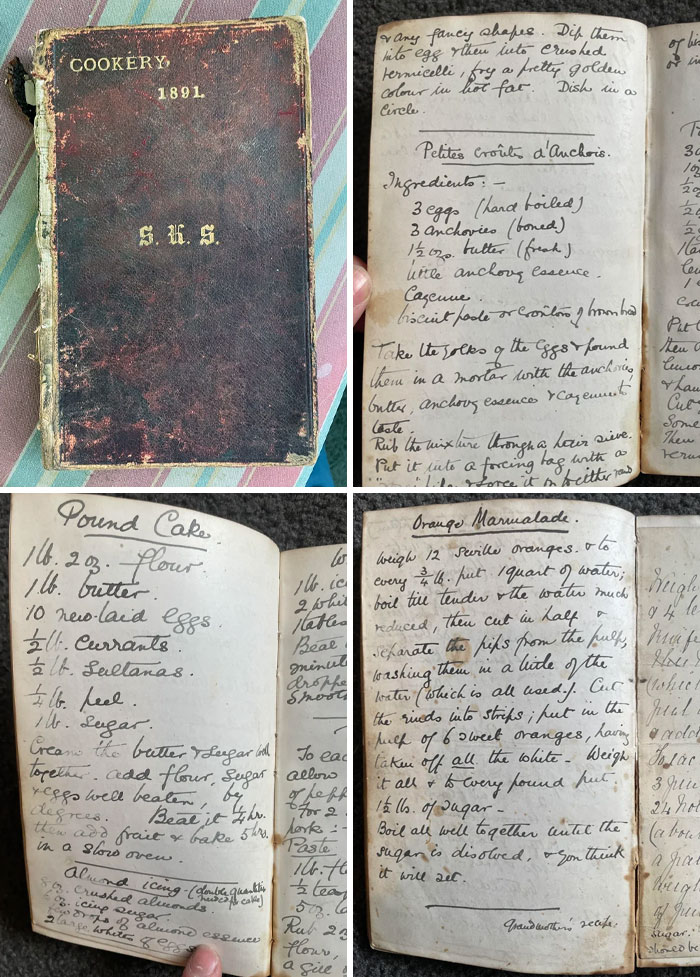 COOKERY,
1891.
S. K. S.
& any fancy shapes. Dip them
into egg & then into crushed
vermicelli, fry a pretty golden
colour in hot fat. Dish in a
circle.
Petites Croûtes d'Anchois.
Ingredients: —
3 eggs (hard boiled)
3 anchovies (boned)
1½ oz. butter (fresh)
little anchovy essence.
Cayenne.
biscuit paste or croûtons of brown bread
Take the yolks of the eggs & pound
them in a mortar with the anchovies,
butter, anchovy essence & cayenne to
taste.
Rub the mixture through a hair sieve.
Put it into a forcing bag with a
pipe & force it on to either
Pound Cake.
1 lb. 2 oz. flour.
1 lb. butter.
10 new-laid eggs.
½ lb. Currants.
½ lb. Sultanas.
¼ lb. peel.
1 lb. Sugar.
Cream the butter & Sugar well
together. add flour, sugar
& eggs well beaten, by
degrees. Beat it ¼ hr.
then add fruit & bake 5 hrs.
in a slow oven.
Almond icing. (double quantities
for cake)
8 oz. crushed almonds
oz. icing sugar.
drops of almond essence
2 large whites of eggs
1 lb. ici
2 whit
Beat
minute
droppe
smooth
To eac
allow
of pepp
For 2
pork: -
Paste
1 lb. fl
½ teas
5 oz. la
Rub 2
flour,
a gill
Orange Marmalade.
Weigh 12 Seville oranges. & to
every ¾ lb. put 1 quart of water;
boil till tender & the water much
reduced, then cut in half &
separate the pips from the pulp,
washing them in a little of the
water (which is all used.). Cut
the rinds into strips; put in the
pulp of 6 sweet oranges, having
taken off all the white. Weigh
it all & to every pound put
1½ lbs. of sugar —
Boil all well together until the
sugar is disolved, & you think
it will set.
Grandmother's recipe.
Weigh
& 4 le
(whic
add
To eac
3 pin
24 ho
(abou
Weigh
of pu
sugar.
should be